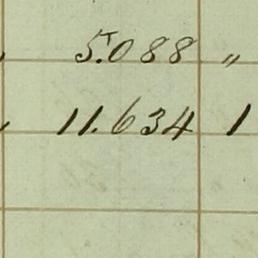 5.088 "
11.634 1